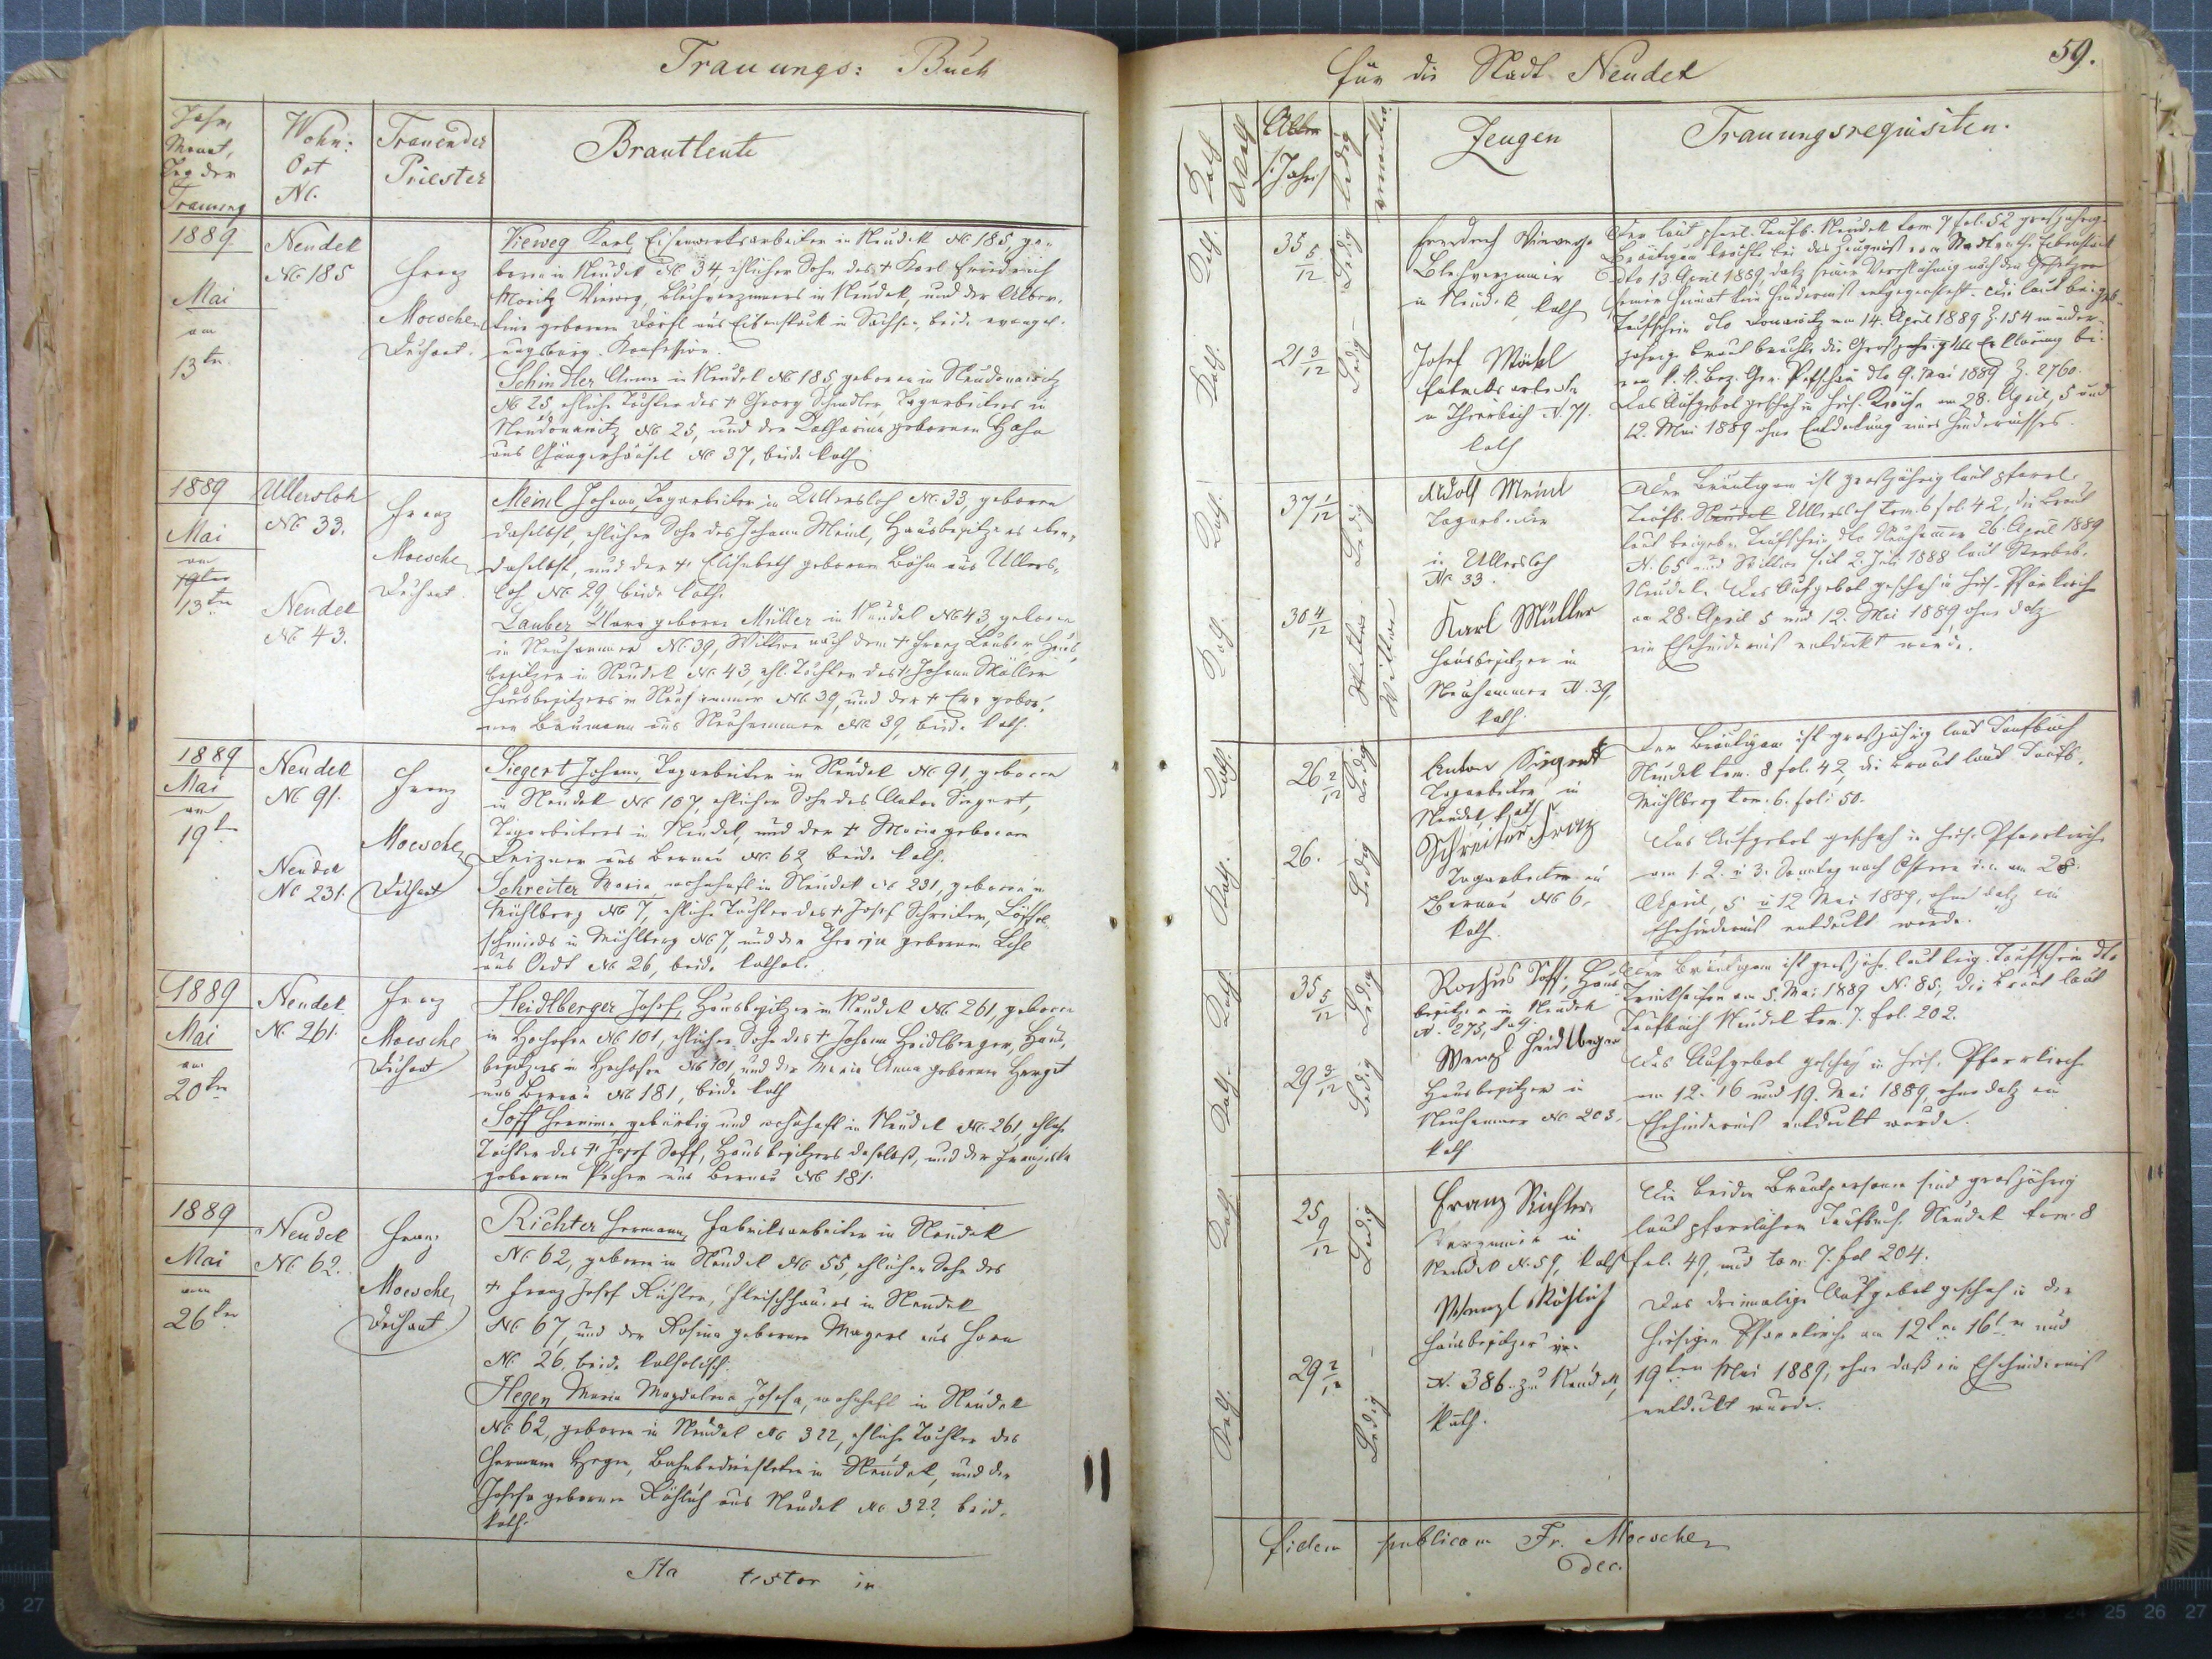 Trauungs: Buch
Jahr,
Monat,
Tag der
Trauung
Wohn:
Ort
No.
Trauender
Priester
Brautleute
1889
Mai
am
13ten
Neudek
No 185
Franz
Moesche
Dechant.
Vieweg Karl, Eisenwerksarbeiter in Neudek No 185, ge-
boren in Neudek No 34 ehlicher Sohn des + Karl Friedrich
Moritz Vieweg, Blechverzinners in Neudek, und der Alber-
tine geborenen Dörfl aus Eibenstock in Sachsen, beide evangel.
augsburg. Konfession.
Schindler Anna in Neudek No 185, geboren in Neudonawitz
No 25, ehliche Tochter des + Georg Schindler, Tagarbeiters in
Neudonawitz No 25, und der Katharina geborenen Hahn
aus No 37, beide kath.
1889
Mai
am
19ten
13ten
Ullersloh
No 33.
Neudek
No 43.
Franz
Moesche
Dechant.
Meinl Johann, Tagarbeiter in Ullersloh No. 33, geboren
daselbst, ehlicher Sohn des Johann Meinl, Hausbesitzers eben-
daselbst, und der + Elisabeth geborenen Böhm aus Ullers-
loh No 29, beide kath.
Lauber geborne Müller in Neudek No 43, geboren
in Neuhammer No. 39, Witwe nach dem + Franz Lauber, Haus-
besitzer in Neudek No 43, ehl. Tochter des + Johann Müller
Hausbesitzers in Neuhammer No 39, und der + Eva gebor-
nen Baumann aus Neuhammer No 89, beide kath.
1889
Mai
am
19ten
Neudek
No 91.
Neudek
No 231.
Franz
Moesche
Dechant
Siegert Johann, Tagarbeiter in Neudek No 91, geboren
in Neudek No 107, ehlicher Sohn des Anton Siegert,
Tagarbeiters in Neudek, und der + Maria geborenen
aus Bernau No 62 beide kath.
Schreiter Maria, wohnhaft in Neudek No 231, geboren in
Mühlberg No 7, ehliche Tochter des + Josef Schreiter, Löffel-
schmieds in Mühlberg No 7, und der Theresia geborenen
aus Oedt No 26, beide kathol.
1889
Mai
am
20ten
Neudek
No. 261.
Franz
Moesche
Dechant
Heidlberger Josef, Hausbesitzer in Neudek No. 261, geboren
in Hochofen No 101, ehlicher Sohn des + Johann Heidlberger, Haus-
besitzers in Hochofen No 101, und der Maria Anna geborenen Herget
aus Bernau No 181, beide kath
Soff Hermine gebürtig und wohnhaft in Neudek No. 261, ehliche
Tochter des + Josef Soff, Hausbesitzers daselbst, und der Franziska
geborenen Pecher aus Bernau No 181.
1889
Mai
am
26ten
Neudek
No 62.
Franz
Moesche
Dechant
Richter Hermann, Fabriksarbeiter in Neudek
No 62, geboren in Neudek No 55, ehlicher Sohn des
+ Franz Josef Richter, Fleischhauers in Neudek
No 67, und der Rosina geborenen Magerl aus
No 26, beide katholisch.
Hegen Maria Magdalena Josefa, wohnhaft in Neudek
No 62, geboren in Neudek No 322, ehliche Tochter des
Hermann Hegen, Bahnbediensteten in Neudek, und der
Josefa geborenen Köhlich aus Neudek No. 322, beide
kath.
Ita testor in
für die Stadt Neudek
59.
Kath
Akath
Alter
/: Jahr:/
ledig
verwitw.
Zeugen
Trauungsrequisiten.
Kath.
35 5/12
Ledig
Friedrich Vieweg
Blechverzinner
in Neudek, kath
Kath.
21 3/12
Ledig
Josef Möckl
Fabriksarbeiter
in Thierbach N. 71.
kath
Der laut pfarrl. Taufb. Neudek tom 7 fol. 52 grossjährige
Bräutigam brachte bei das Zeugniß vom Stadtrathe Eibenstock
dto 13. April 1889, daß seiner Verehelichung nach den Gesetzen
seiner Heimat kein Hinderniß entgegensteht. Die laut beigeb.
Taufschein dto Donawitz am 14. April 1889 Z. 154 minder-
jährige Braut brachte die Großjährigkeits Erklärung bei
vom k. k. Bez. Ger. Petschau dto 9. Mai 1889 Z. 2760.
Das Aufgebot geschah in hies. Kirche am 28. April, 5 und
12. Mai 1889 ohne Entdeckung eines Hindernisses.
Kath.
37 1/12
Ledig
Adolf Meinl
Tagarbeiter
in Ullersloh
No 33.
Kath.
30 4/12
Witwe
Karl Müller
Hausbesitzer in
Neuhammer N. 39,
kath.
Der Bräutigam ist großjährig laut pfarrl.
Taufb. Neudek Ullersloh tom. 6 fol. 42, die Braut
laut beigeb. Taufschein dto Neuhammer 26. April 1889
N. 65 und Witwe seit 2. Juli 1888 laut Sterbeb.
Neudek. Das Aufgebot geschah in hies. Pfarrkirche
am 28. April 5 und 12. Mai 1889, ohne daß
ein Ehehinderniß entdeckt wurde.
Kath.
26 2/12
Ledig
Anton Siegert
Tagarbeiter in
Neudek, kath
Kath.
26.
Ledig
Schreiter Franz
Tagarbeiter in
Bernau No 6,
kath.
Der Bräutigam ist großjährig laut Taufbuch
Neudek tom. 8 fol. 42, die Braut laut Taufb.
Mühlberg tom. 6. foli 50.
Das Aufgebot geschah in hies. Pfarrkirche
am 1. 2. u 3. Sonntag nach Ostern d. i. am 28.
April, 5 u 12 Mai 1889, ohne daß ein
Ehehinderniß entdeckt wurde.
Kath.
35 5/12
Ledig
Rochus Soff, Haus-
besitzer in Neudek
N. 275, kath.
Kath.
29 3/12
Ledig
Wenzl Heidlberger
Hausbesitzer in
Neuhammer No 203,
kath
Der Bräutigam ist großjähr. laut beig. Taufschein dto
Trinkseifen am 5. Mai 1889 N. 85, die Braut laut
Taufbuch Neudek tom. 7. fol. 202.
Das Aufgebot geschah in hies. Pfarrkirche
am 12. 16 und 19. Mai 1889, ohne daß ein
Ehehinderniß entdeckt wurde.
Kath.
25 9/12
Ledig
Franz Richter
Verzinner in
Neudek N. 59, kath
Kath.
29 2/12
Ledig
Wenzl Köhlich
Hausbesitzer in
N. 386. zu Neudek,
kath.
Die beiden Brautpersonen sind großjährig
laut pfarrlichem Taufbuch Neudek tom. 8
fol. 49, und tom. 7. fol 204.
Das dreimalige Aufgebot geschah in der
hiesigen Pfarrkirche am 12ten 16ten und
19ten Mai 1889, ohne daß ein Ehehinderniß
entdeckt wurde.
fidem publicam Fr. Moesche
dec.